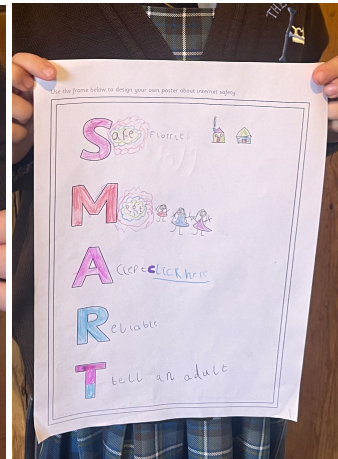 Use the frame below to design your own poster about internet safety.
Safe
Meet
Accept Click here
Reliable
tell an adult